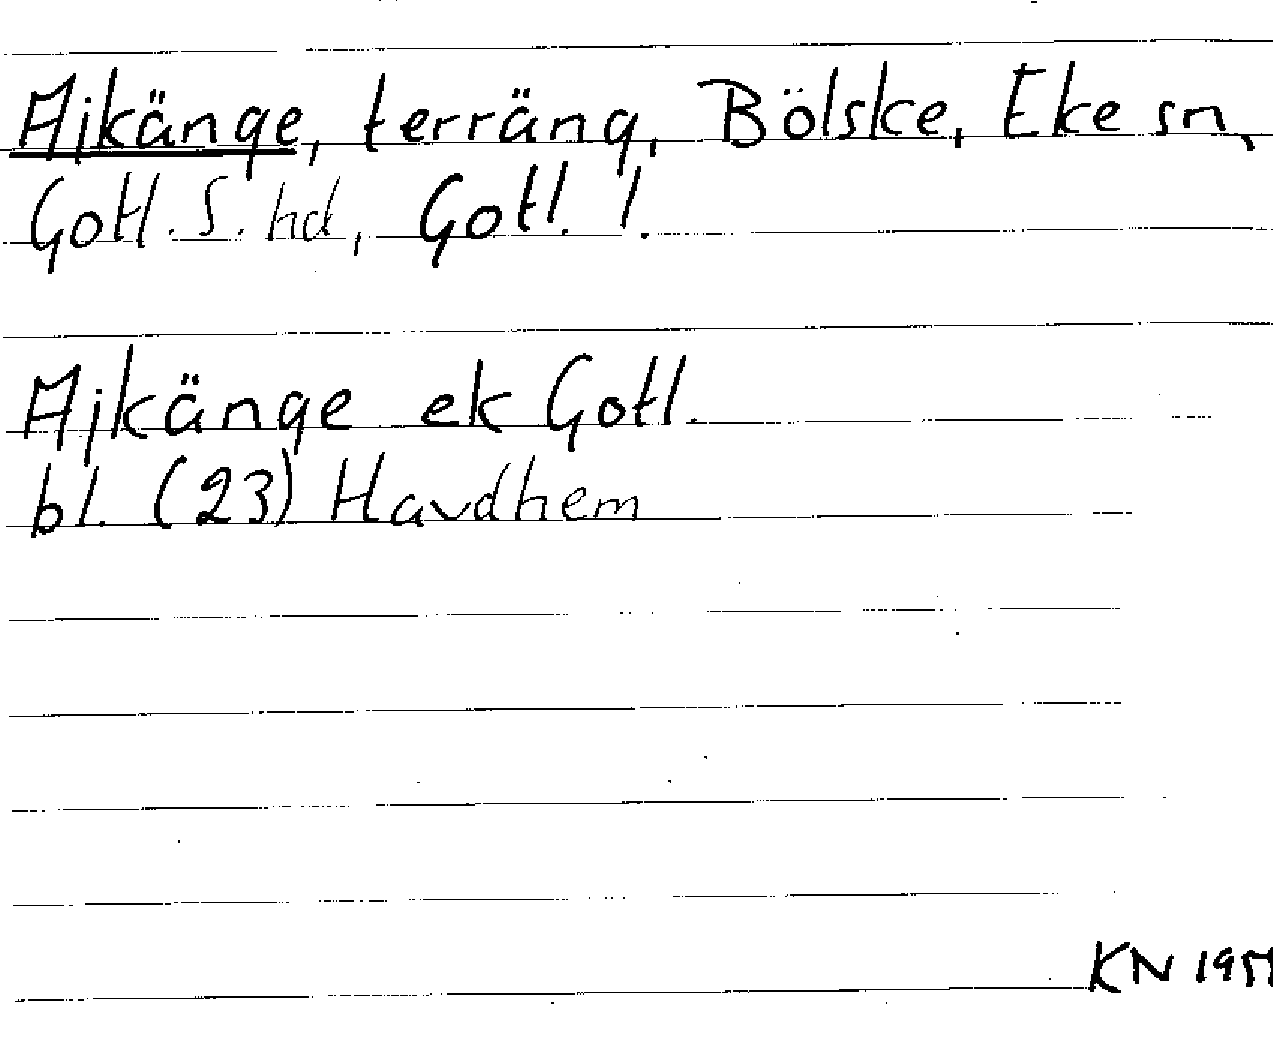 Ajkänge, terräng, Bölske, Eke sn,
Gotl. S. hd, Gotl. !.
Ajkänge ek Gotl.
bl. (23) Havdhem
KN